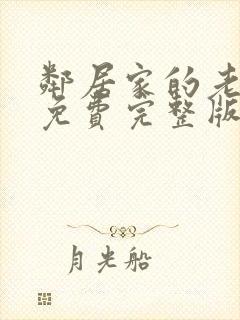 鄰居家的老
免費完整版
月光船